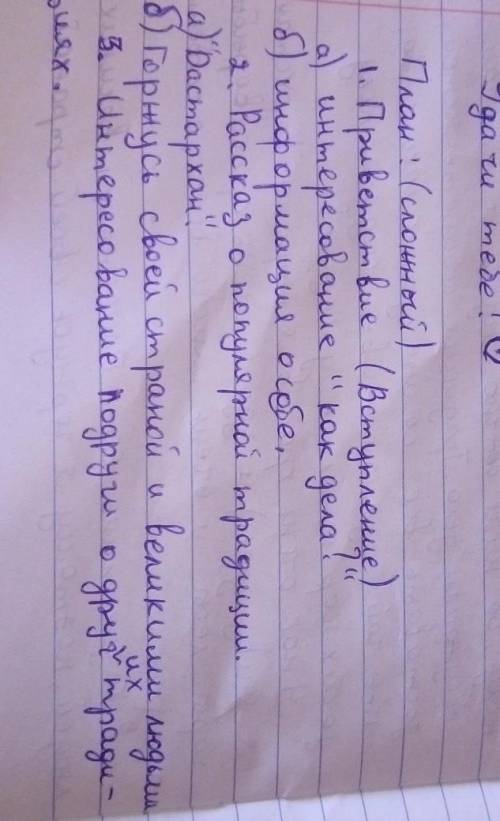 Удачи тебе!
План: (сложный)
1. Приветствие (Вступление)
а) интересование "как дела?"
б) информация о себе,
2. Рассказ о популярной традиции.
а) "Дастархан"
б) Горжусь своей страной и великими людьми
3. Интересование подруги о других тради-
циях.